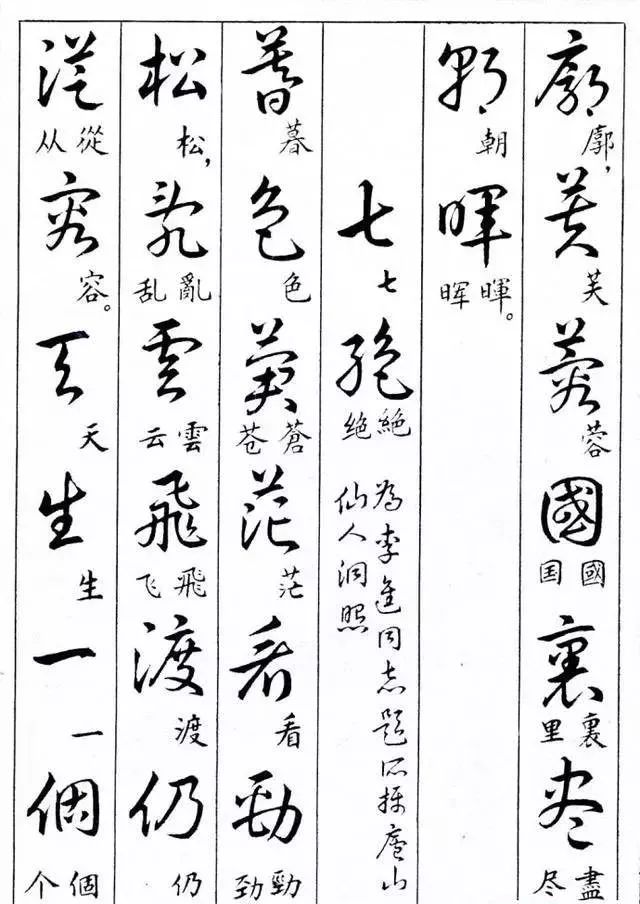 廓 廓，芙 芙 蓉 蓉 國 國 国 裏 裏 里 盡 盡 尽
朝 朝 暉 暉 晖。
七 七 絶 絶 绝
為李進同志題所攝廬山
仙人洞照
暮 暮 色 色 蒼 蒼 苍 茫 茫 看 看 勁 勁 劲
松 松，亂 亂 乱 雲 雲 云 飛 飛 飞 渡 渡 仍 仍
從 從 从 容 容。天 天 生 生 一 一 個 個 个